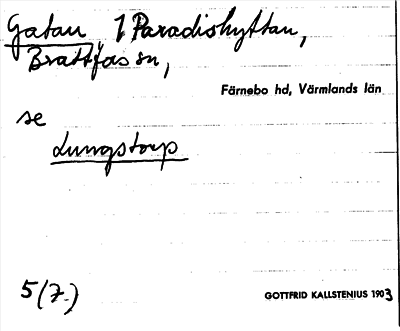 Gatan, 1 Paradishyttan,
Brattfors sn,
Färnebo hd, Värmlands län
se
Lungstorp
5(7.)
GOTTFRID KALLSTENIUS 1903